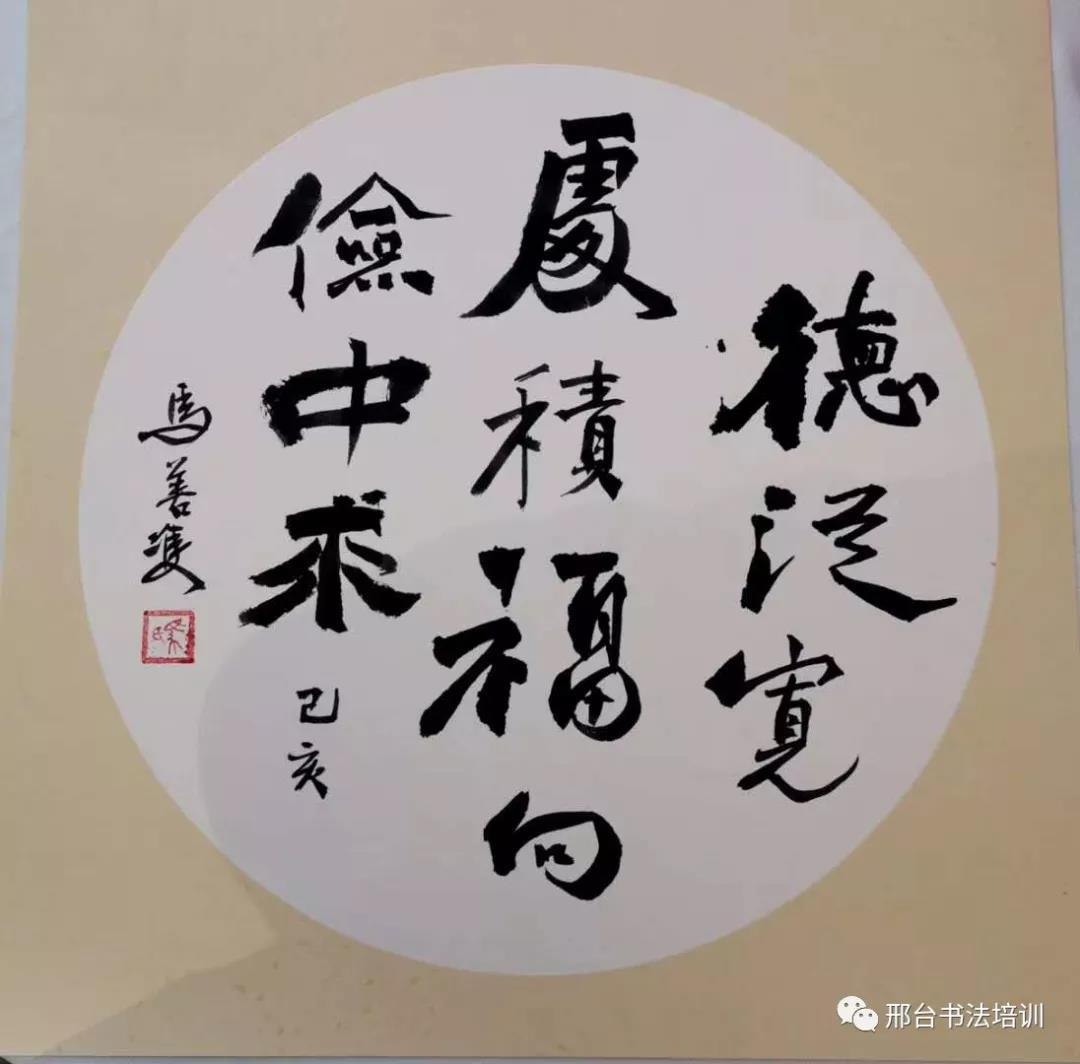 德從寬
處積福向
儉中求
己亥
馬善雙
邢台书法培训